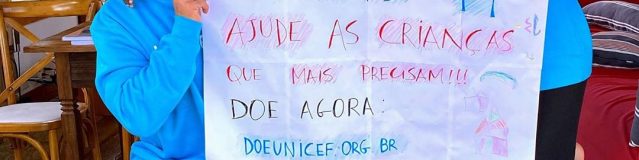 AJUDE AS CRIANÇAS
QUE MAIS PRECISAM!!!
DOE AGORA:
DOEUNICEF.ORG.BR